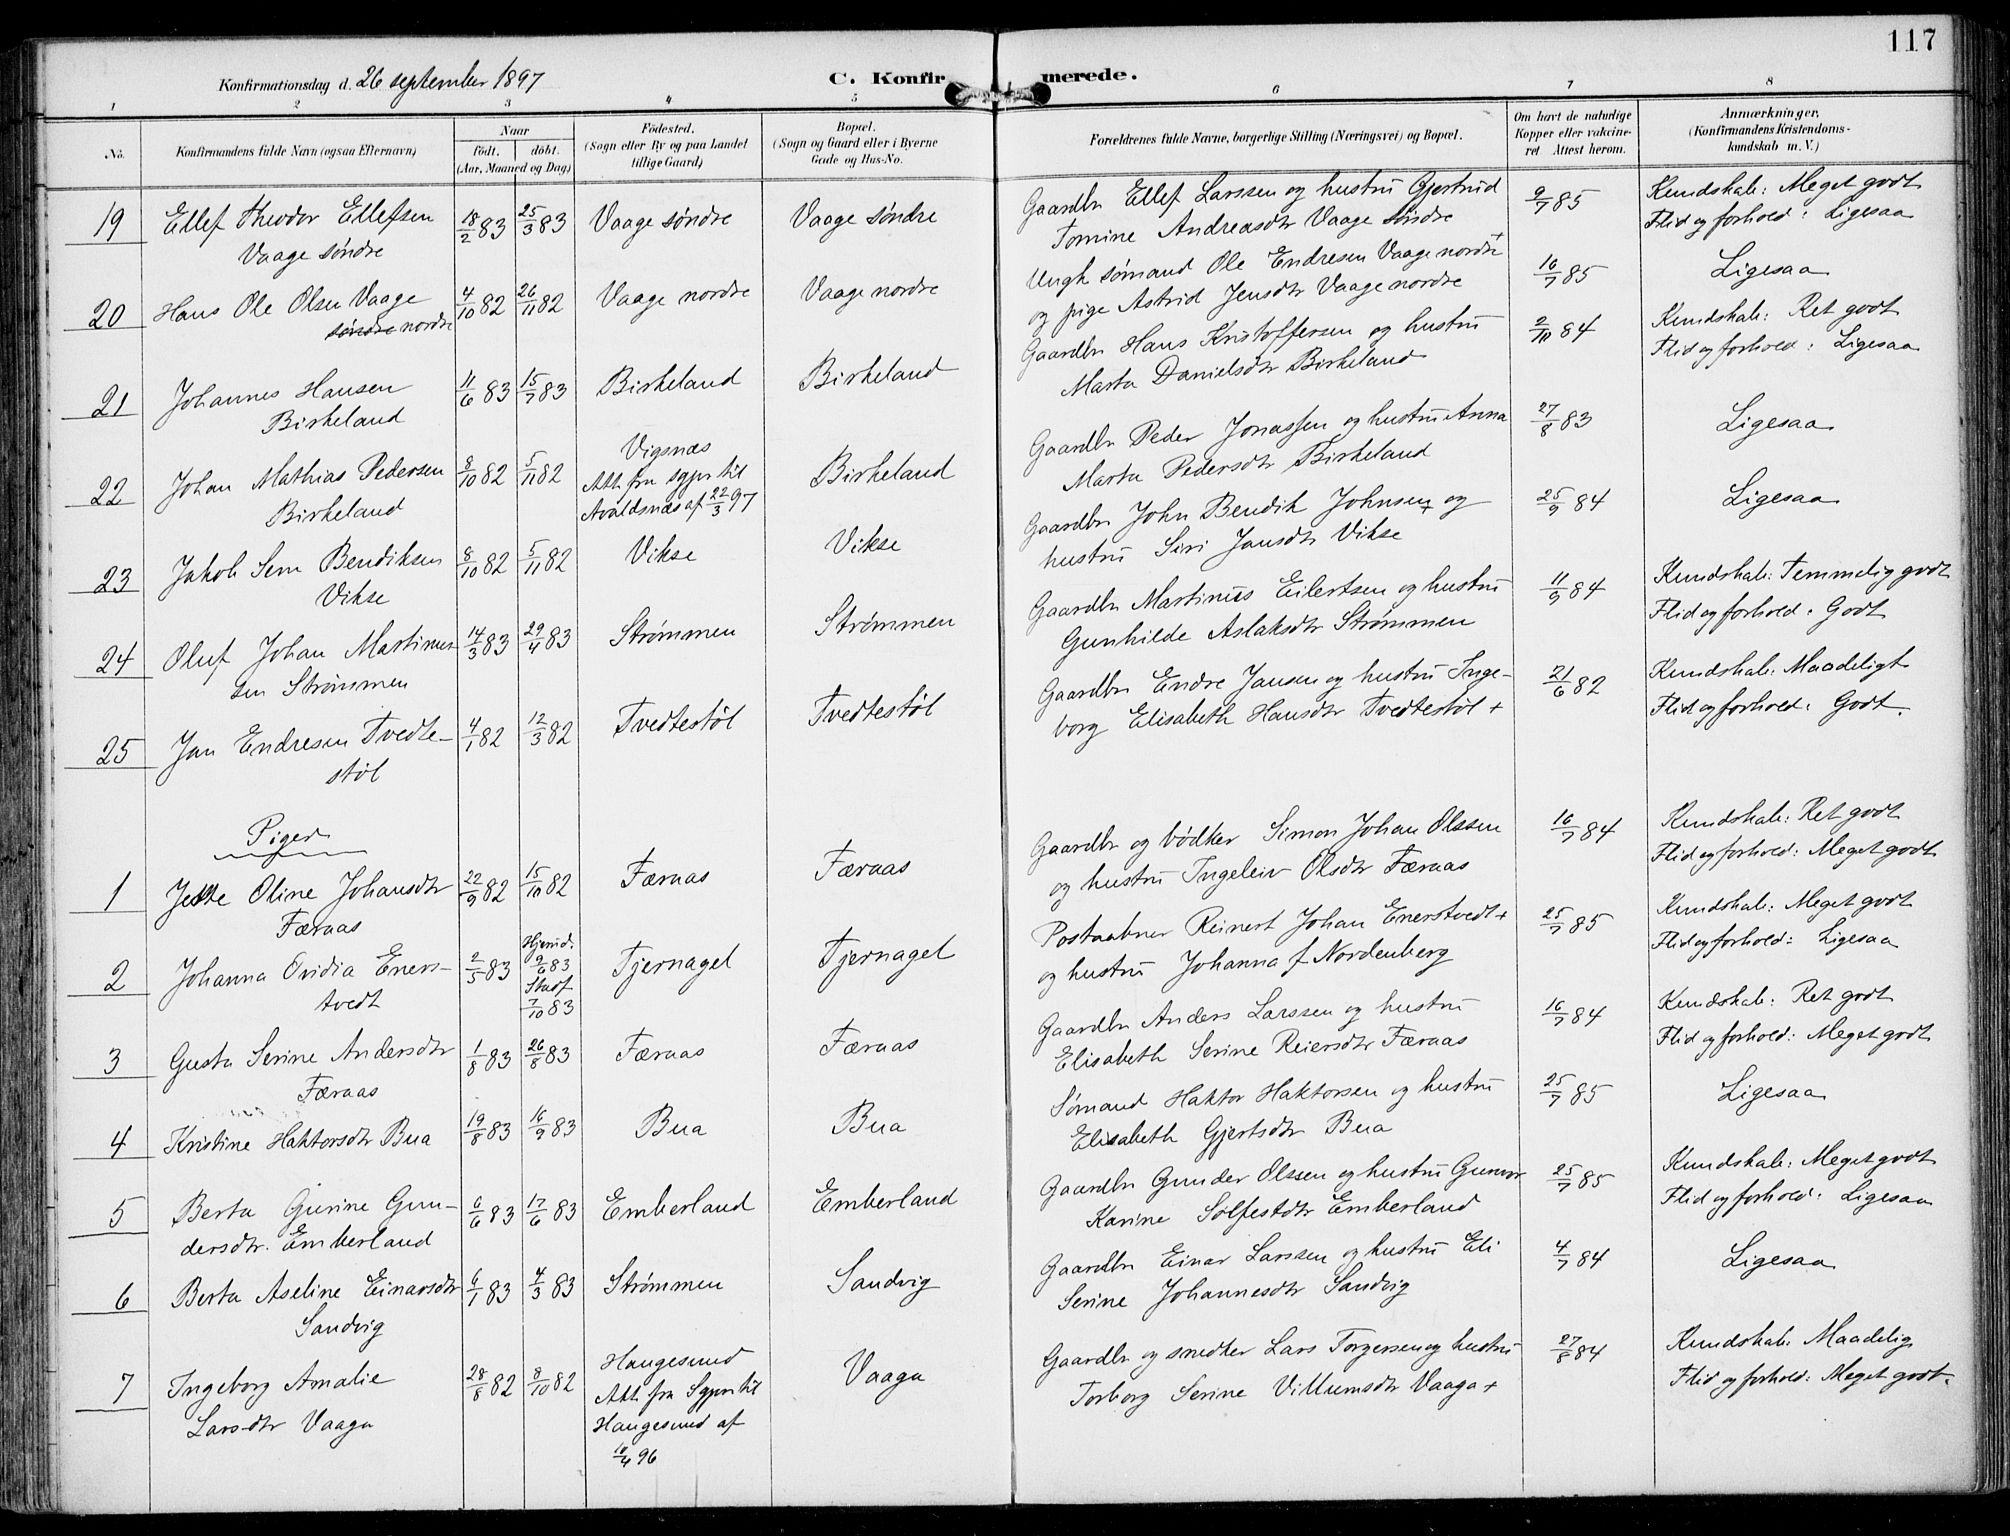 117
Konfirmationsdag d. 26 september 1897
C. Konfirmerede.
1 2 3 4 5 6 7 8
No.
Konfirmandens fulde Navn (ogsaa Efternavn)
Naar
født. døbt.
(Aar, Maaned og Dag)
Fødested.
(Sogn eller By og paa Landet
tillige Gaard)
Bopæl.
(Sogn og Gaard eller i Byerne
Gade og Hus-No.
Forældrenes fulde Navne, borgerlige Stilling (Næringsvei) og Bopæl.
Om havt de naturlige
Kopper eller vakcine-
ret Attest herom.
Anmærkninger,
(Konfirmandens Kristendoms-
kundskab m. V.)
19 Ellef Theodor Ellefsen
Vaage søndre
18/2 83 25/3 83 Vaage søndre Vaage søndre
Gaardbr Ellef Larssen og hustru Gjertrud
Tomine Andreasdtr Vaage søndre
9/7 85
Kundskab: Meget godt
Flid og forhold: Ligesaa
20 Hans Ole Olsen Vaage
søndre nordre
4/10 82 26/11 82 Vaage nordre Vaage nordre
Ungk sømand Ole Endresen Vaage nordre +
og pige Astrid Jensdtr Vaage nordre
16/7 85 Ligesaa
21 Johannes Hansen
Birkeland
11/6 83 15/7 83 Birkeland Birkeland
Gaardbr Hans Kristoffersen og hustru
Marta Danielsdtr Birkeland
2/10 84
Kundskab: Ret godt
Flid og forhold: Ligesaa
22 Johan Mathias Pedersen
Birkeland
8/10 82 5/11 82
Vigsnæs
Att. fra sgpr til
Avaldsnæs af 22/3 97
Birkeland
Gaardbr Peder Jonassen og hustru Anna
Marta Pedersdtr Birkeland
27/8 83 Ligesaa
23 Jakob Sem Bendiksen
Vikse
8/10 82 5/11 82 Vikse Vikse
Gaardbr John Bendik Johnsen + og
hustru Siri Jansdtr Vikse
25/9 84 Ligesaa
24 Oluf Johan Martinus-
sen Strømmen
14/3 83 29/4 83 Strømmen Strømmen
Gaardbr Martinus Eilertsen og hustru
Gunhilde Aslaksdtr Strømmen
11/9 84
Kundskab: Temmelig godt
Flid og forhold: Godt
25 Jan Endresen Tvedte-
støl
4/1 82 12/3 82 Tvedtestøl Tvedtestøl
Gaardbr Endre Jansen og hustru Inge-
borg Elisabeth Hansdtr Tvedtestøl +
21/6 82
Kundskab: Maadeligt
Flid og forhold: Godt.
Piger
1 Jette Oline Johansdtr
Færaas
22/9 82 15/10 82 Færaas Færaas
Gaardbr og bødker Simon Johan Olssen
og hustru Ingeleiv Olsdtr Færaas
16/7 84
Kundskab: Ret godt
Flid og forhold: Meget godt
2 Johanna Ovidia Eners-
tvedt
2/5 83
Hjemd.
9/6 83
Stadf
7/10 83
Tjernagel Tjernagel
Postaabner Reinert Johan Enerstvedt +
og hustru Johanna f Nordenberg
25/7 85
Kundskab: Meget godt
Flid og forhold: Ligesaa
3 Gusta Serine Andersdtr
Færaas
1/8 83 26/8 83 Færaas Færaas
Gaardbr Anders Larssen og hustru
Elisabeth Serine Reiersdtr Færaas
16/7 84
Kundskab: Ret godt
Flid og forhold: Meget godt
4 Kristine Haktorsdtr Bua
19/8 83 16/9 83 Bua Bua
Sømand Haktor Haktorsen og hustru
Elisabeth Gjertsdtr Bua
25/7 85 Ligesaa
5 Berta Gurine Gun-
dersdtr. Emberland
6/6 83 17/6 83 Emberland Emberland
Gaardbr Gunder Olssen og hustru Gunvor
Karine Solfestdtr Emberland
25/7 85
Kundskab: Meget godt
Flid og forhold: Ligesaa
6 Berta Aseline Einarsdtr
Sandvig
6/1 83 4/3 83 Strømmen Sandvig
Gaardbr Einar Larssen og hustru Eli
Serine Johannesdtr Sandvig
4/7 84 Ligesaa
7 Ingeborg Amalie
Larsdtr Vaaga
28/8 82 8/10 82
Haugesund
Att. fra Sgpr til
Haugesund af
10/4 96
Vaaga
Gaardbr og snedker Lars Torgersen og hustru
Torborg Serine Villumsdtr Vaaga +
27/8 84
Kundskab: Maadelig
Flid og forhold: Meget godt.